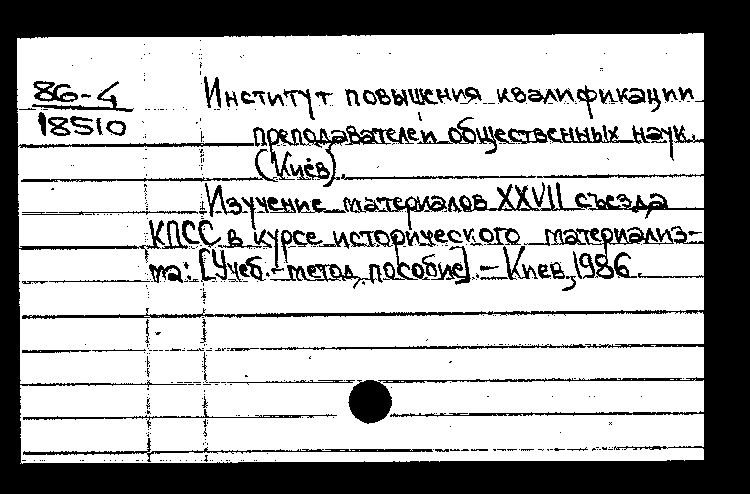 86-4
18510
Институт повышения квалификации
преподавателей общественных наук.
(Киев).
Изучение материалов XXVII съезда
КПСС в курсе исторического материализ-
ма: [Учеб.-метод. пособие]. - Киев, 1986.